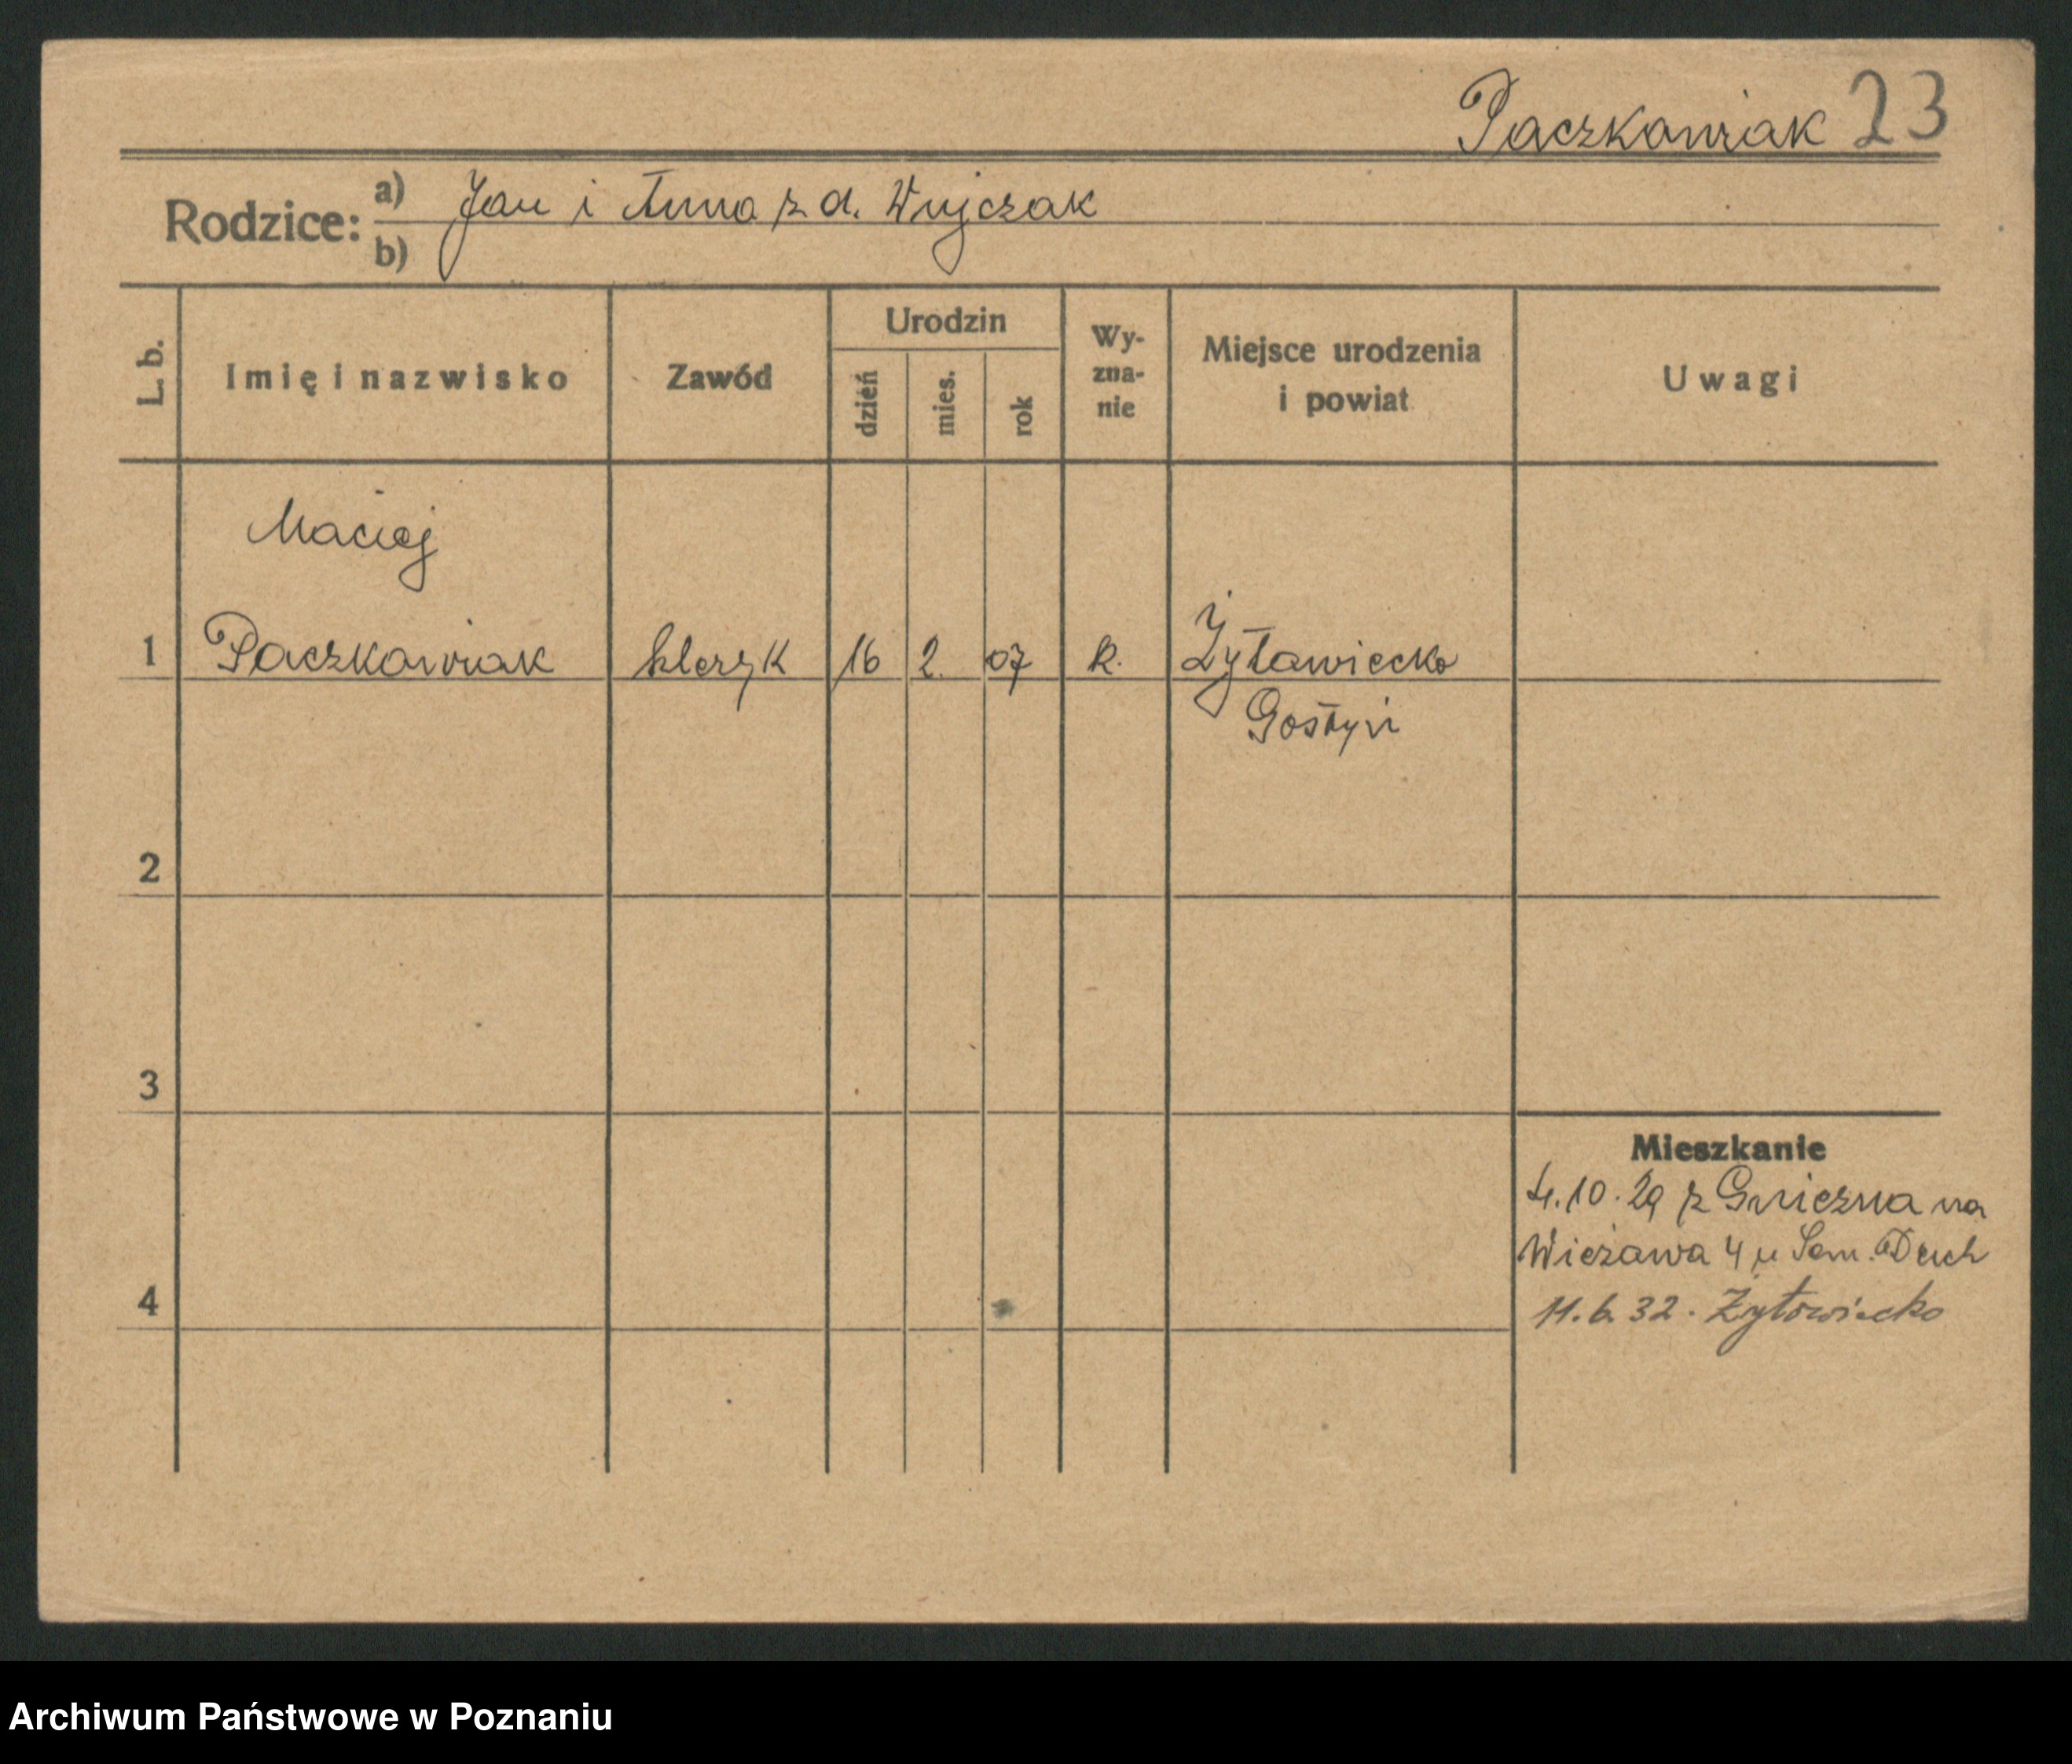 Paczkowiak 23
Rodzice: a) Jan i Anna z d. Wujczak
b)
L. b. Imię i nazwisko Zawód Urodzin dzień mies. rok Wy-zna-nie Miejsce urodzenia i powiat Uwagi
Maciej
1 Paczkowiak kleryk 16 2. 07 k. Żytowiecko
Gostyń
2
3
Mieszkanie
4.10.29 z Gniezna na
Wieżowa 4 u Sem. Duch
4 11.6.32. Żytowiecko
Archiwum Państwowe w Poznaniu